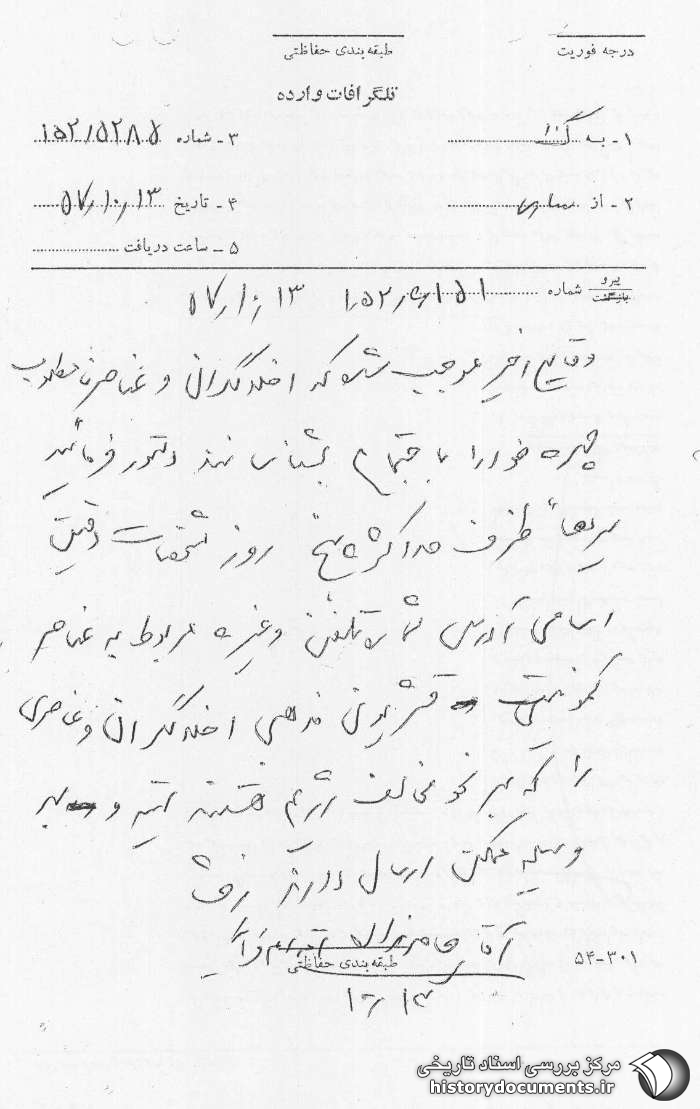 درجه فوریت
طبقه‌بندی حفاظتی
تلگرافات وارده
۱- به
۳- شماره ۱۵۲/۵۲۸۵
۲- از ساری
۴- تاریخ ۵۷/۱۰/۱۳
۵- ساعت دریافت
پیرو
بازگشت
شماره ۵۷/۱۰/۱۳
وقایع اخیر موجب شده که اخلالگران و عناصر نامطلوب
چهره خود را به اجتماع بشناسانند دستور فرمائید
ظرف حداکثر پنج روز مشخصات دقیق
اسامی آدرس شماره تلفن و غیره مربوط به عناصر
کمونیست قشریون مذهبی اخلالگران و عناصری
را که بهر نحو مخالف رژیم هستند تهیه و به
وسیله ممکن ارسال دارند
آقای
طبقه‌بندی حفاظتی
۱۰/۱۳
۵۴-۳۰۱
مرکز بررسی اسناد تاریخی
historydocuments.ir